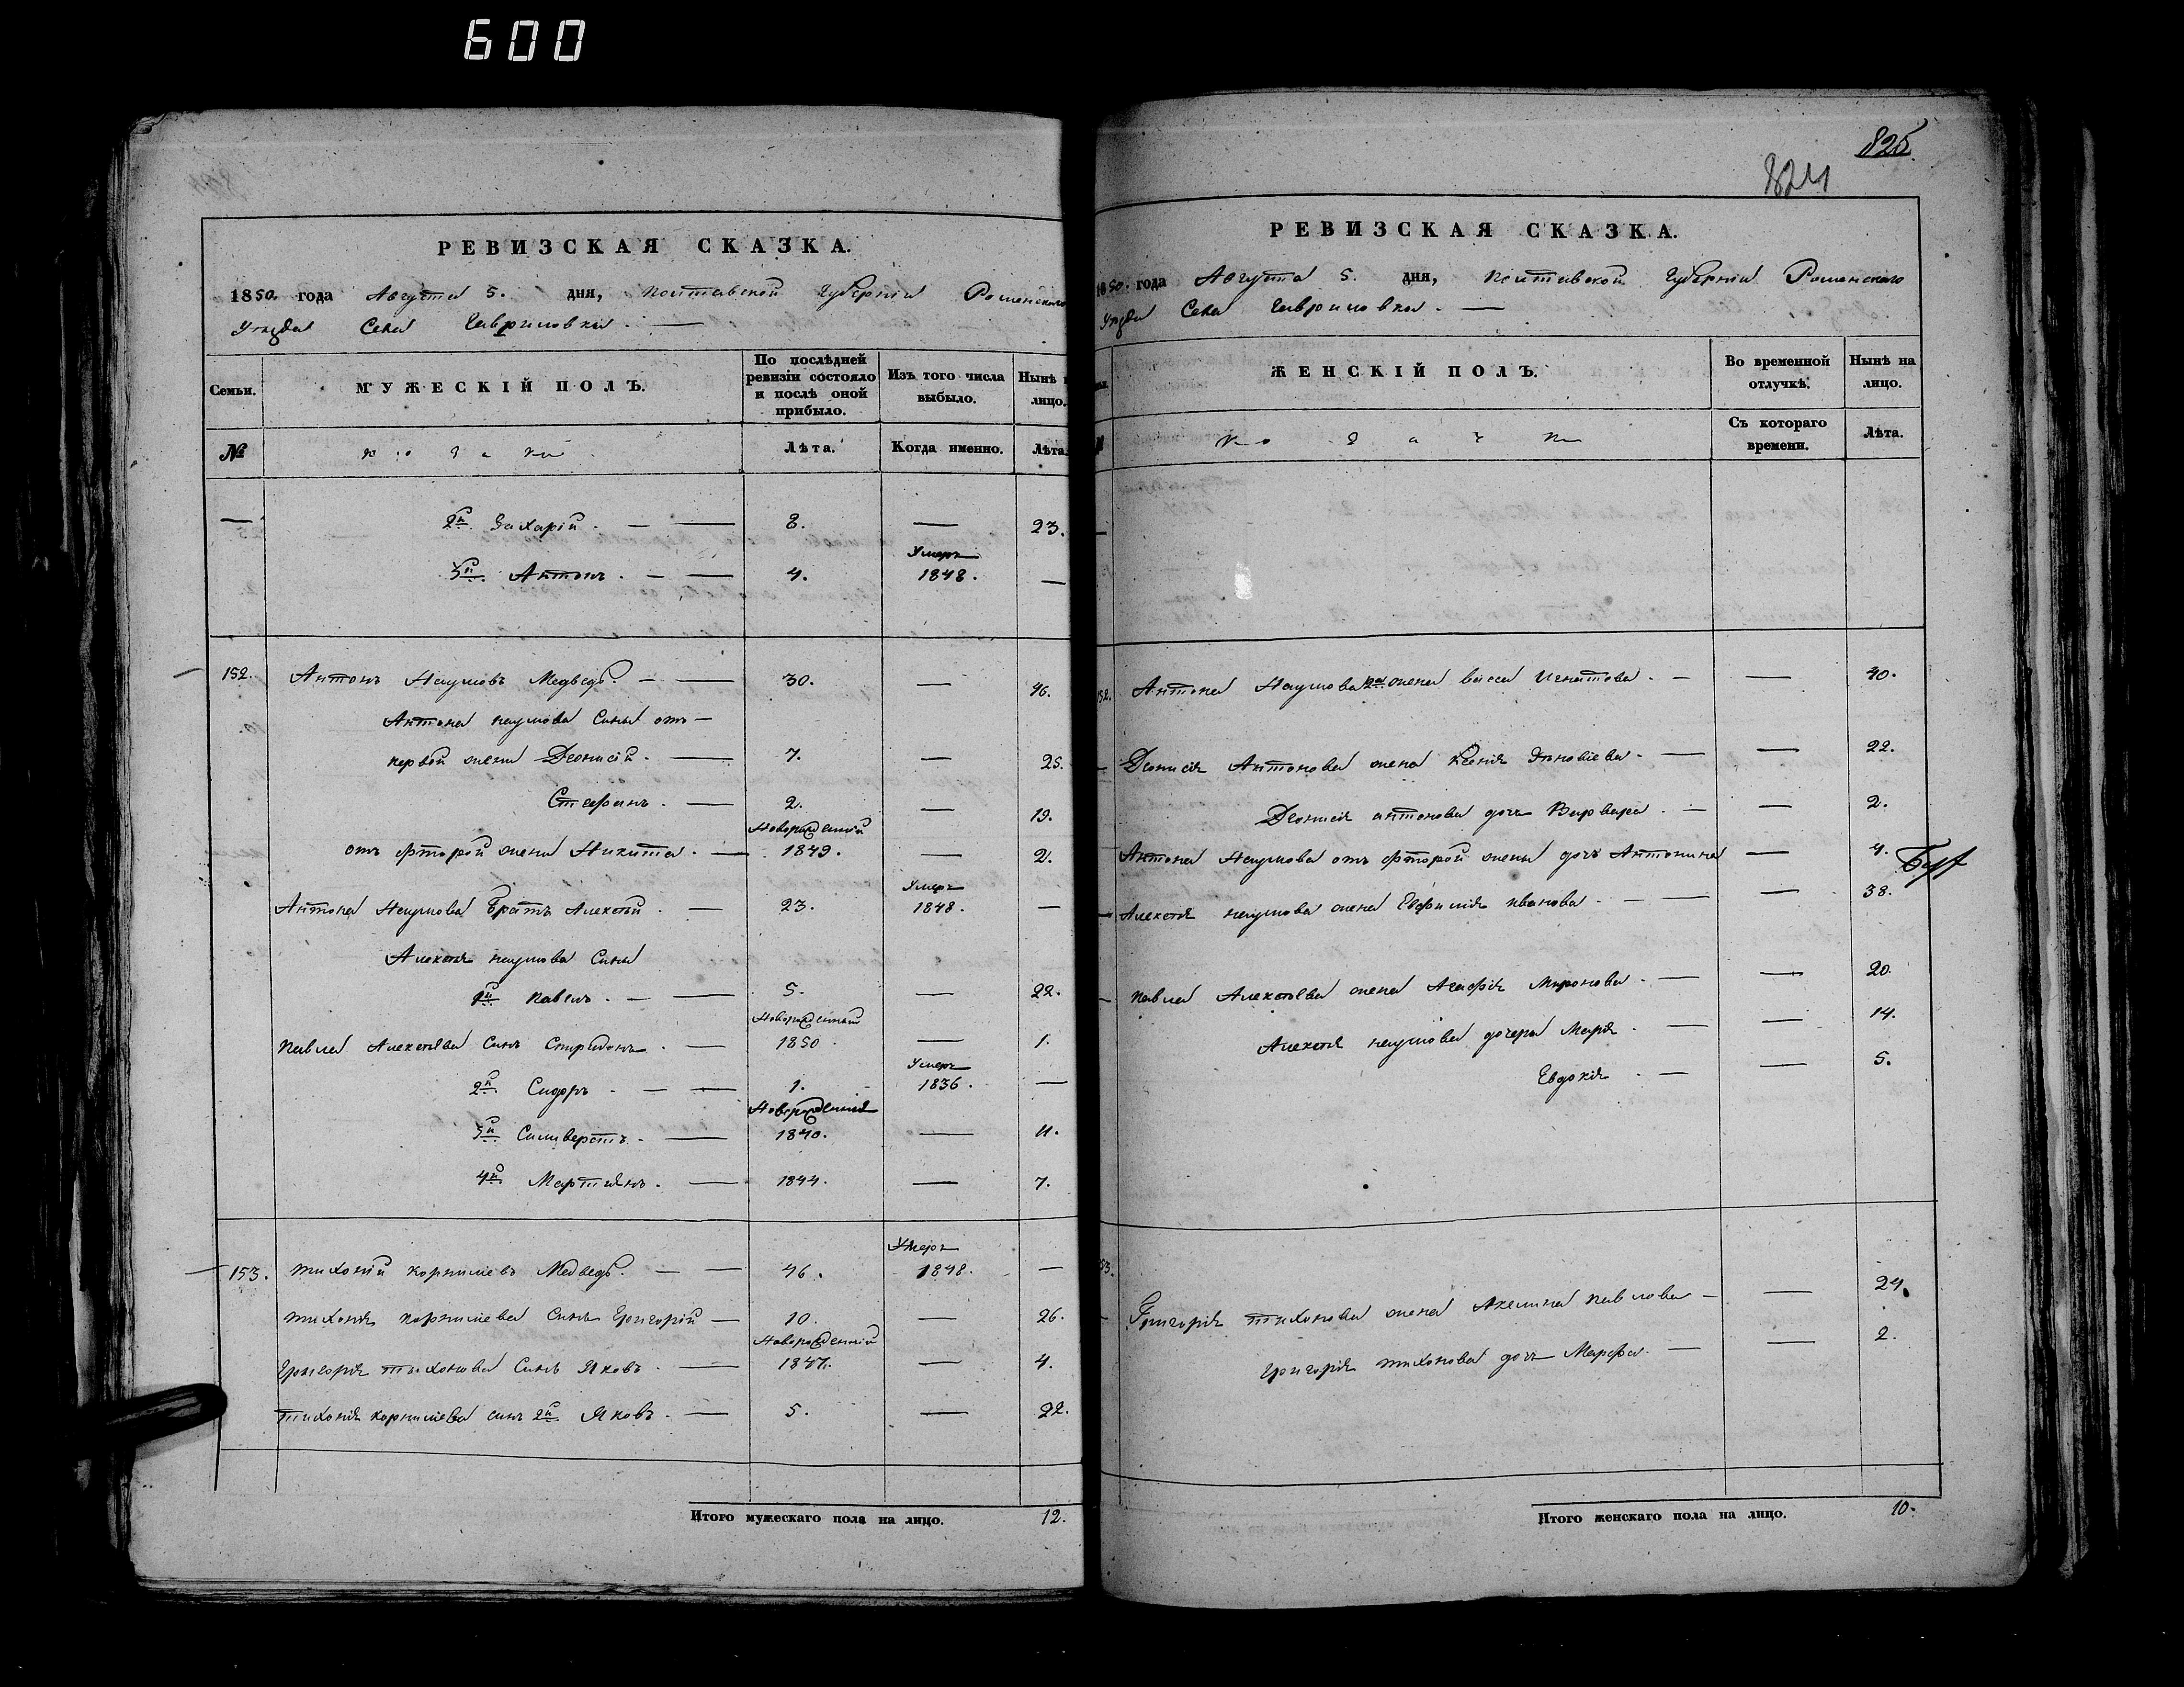 600
РЕВИЗСКАЯ СКАЗКА.
1850. года Августа 5. дня, Полтавской Губерніи Роменского
Уѣзда Села Гавриловки. —
Семьи. МУЖЕСКІЙ ПОЛЪ. По послѣдней ревизіи состояло и послѣ оной прибыло. Изъ того числа выбыло. Нынѣ лицо.
№ козаки Лѣта. Когда именно. Лѣта
— 2й Захарій. — 8. — 23.
Умеръ
3й Антонъ. — 4. 1848. —
152. Антонъ Наумовъ Медведь. — 30. — 46.
Антона Наумова Сины отъ —
первой жени Деонисій. — 7. — 25.
Стефанъ. — 2. — 19.
Новорожденній
отъ фторой жени Никита. — 1849. — 2.
Умеръ
Антона Наумова Братъ Алексѣй. — 23. 1848. —
Алексѣя наумова Сины
1й Павелъ. — 5. — 22.
Новорожденный
Павла Алексѣева Синъ Спиридонъ. — 1850. — 1.
Умеръ
2й Сидоръ. — 1. 1836. —
Новорожденнія
3й Силиверстъ. — 1840. — 11.
4й Мартіянъ. — 1844. — 7.
Умеръ
153. Тихоній Корнилієвъ Медведь. — 46. 1848. —
Тихонія Корнилієва Синъ Григорій — 10. — 26.
Новорожденній
Григорія Тихонова Синъ Яковъ. — 1847. — 4.
Тихонія Корнилієва синъ 2й Яковъ. — 5. — 22.
Итого мужескаго пола на лицо. 12.
825.
824
РЕВИЗСКАЯ СКАЗКА.
1850. года Августа 5. дня, Полтавской Губерніи Роменского
Уѣзда Села Гавриловки. —
ЖЕНСКІЙ ПОЛЪ. Во временной отлучкѣ. Нынѣ на лицо.
козачки Съ котораго времени. Лѣта.
152. Антона Наумова 2я жена Васса Игнатова. — — 40.
Деонисія Антонова жена Ксенія Зѣновіева. — — 22.
Деонисія антонова дочь Варвара. — — 2.
Антона Наумова отъ фторой жены дочъ Антонина — 4.
Алексѣя наумова жена Евфимія иванова. — — 38.
Павла Алексѣева жена Агафія Миронова. — — 20.
Алексѣя наумова дочери Марія. — — 14.
Евдокія. — — 5.
153. Григорія Тихонова жена Акелина Павлова — — 24.
Григорія тихонова дочь Марфа. — — 2.
Итого женскаго пола на лицо. 10.